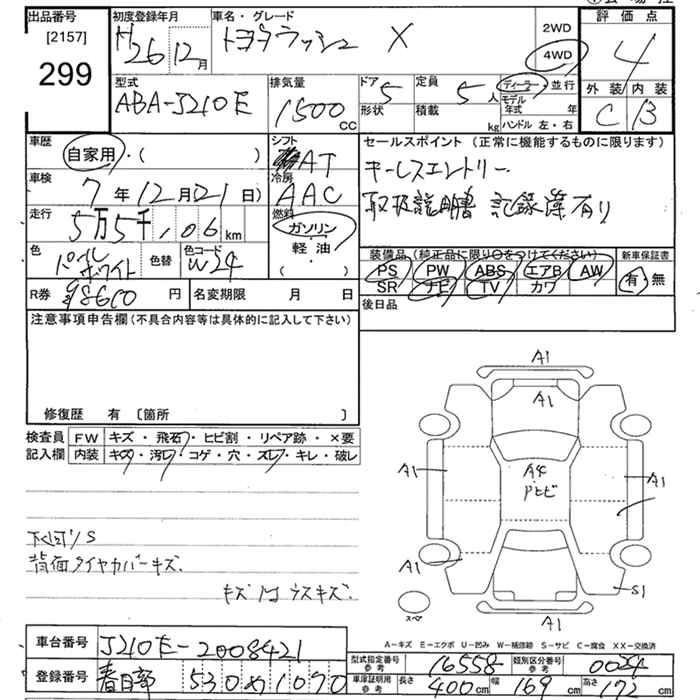 出品番号
[2157]
299
初度登録年月
H26 12月
車名・グレード
トヨタラッシュ X
2WD
4WD
評価点
4
外装 内装
C B
型式
ABA-J210E
排気量
1500
CC
ドア 5
形状
定員 5人
積載 kg
ディーラー・並行
モデル
年式 年
ハンドル 左・右
車歴
自家用・( )
シフト
AT
冷房
AAC
車検
7年12月21日)
走行
5万5千,06km
燃料
ガソリン
軽・油
( )
色
パールホワイト
色替
色コード
W24
R券
98600円
名変期限 月 日
セールスポイント (正常に機能するものに限ります)
キーレスエントリー
取扱説明書 記録簿有り
装備品(純正品に限り○をつけてください)
PS PW ABS エアB AW
SR ナビ TV カワ
新車保証書
有・無
後日品
注意事項申告欄(不具合内容等は具体的に記入して下さい)
修復歴 有 [箇所 ]
検査員 FW キズ・飛石・ヒビ割・リペア跡・×要
記入欄 内装 キズ・汚レ・コゲ・穴・スレ・キレ・破レ
下回り S
背面タイヤカバーキズ
キズ ラスキズ
A1
A1
A1
A4
A1
A1
S1
A1
スペア
A-キズ E-エクボ U-凹み W-補修跡 S-サビ C-腐食 XX-交換済
車台番号
J210E-2008421
登録番号
春日部 530 1070
型式指定番号
参考
16558
類別区分番号
参考
0024
車庫証明用
参考
長さ
400cm
幅
169cm
高さ
172cm